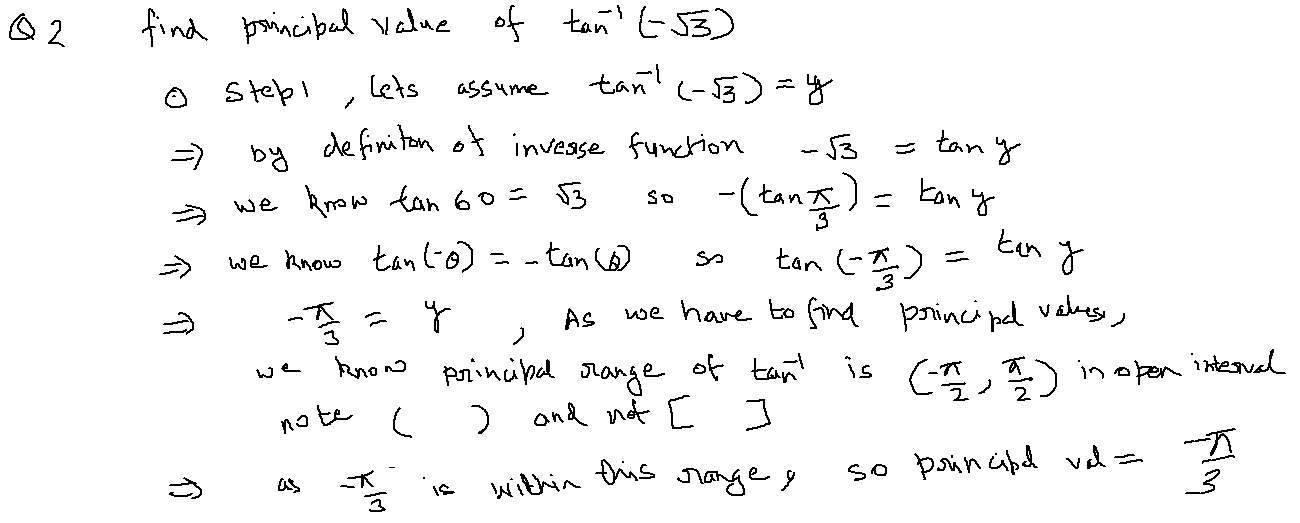 Q2 find principal value of tan⁻¹ (-√3)
○ Step1 , lets assume tan⁻¹ (-√3) = y
⇒ by definiton of inverse function -√3 = tan y
⇒ we know tan 60 = √3 so -(tan π/3) = tan y
⇒ we know tan(-θ) = -tan(θ) so tan (-π/3) = tan y
⇒ -π/3 = y , As we have to find principal values,
we know principal range of tan⁻¹ is (-π/2, π/2) in open interval
note ( ) and not [ ]
⇒ as -π/3 is within this range, so principal val = -π/3